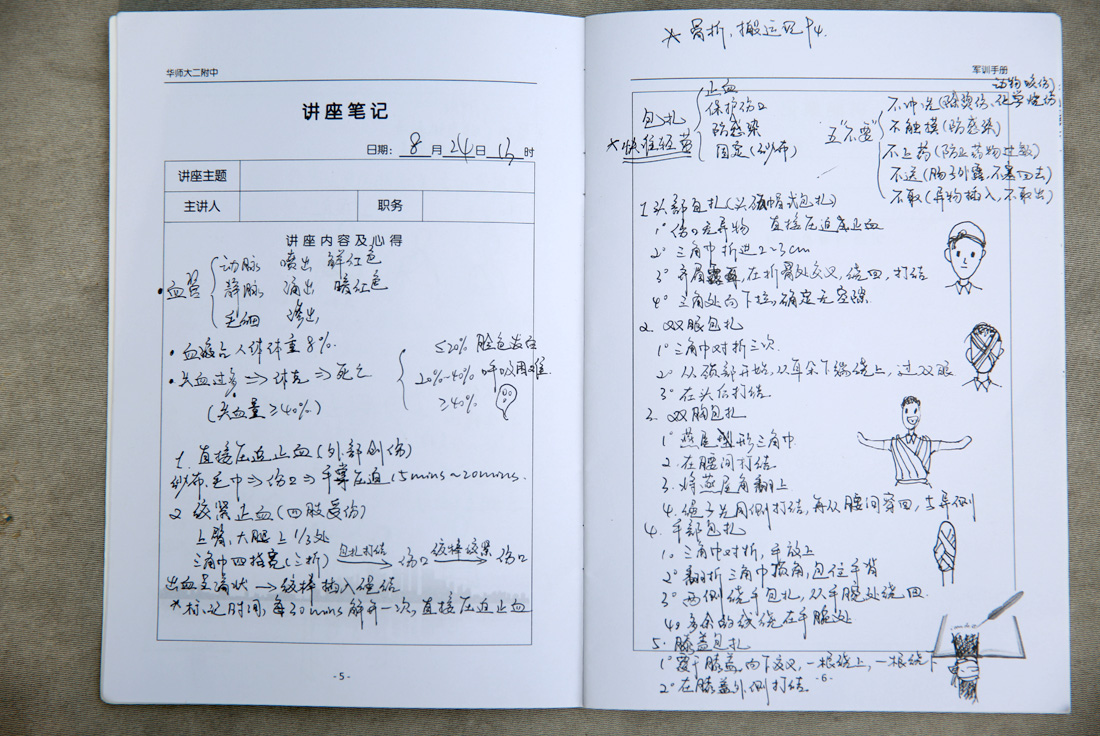 华师大二附中
讲座笔记
日期: 8 月 24 日 13 时
讲座主题
主讲人 职务
讲座内容及心得
·血管 动脉 喷出 鲜红色
静脉 涌出 暗红色
毛细 渗出
·血液占人体体重8%.
·失血过多 ⇒ 休克 ⇒ 死亡
(失血量≥40%)
≤20% 脸色苍白
20%-40% 呼吸困难.
≥40%
1. 直接压迫止血(外部创伤)
纱布、毛巾 ⇒ 伤口 ⇒ 手掌压迫 15mins~20mins.
2 绞紧止血(四肢受伤)
上臂、大腿上1/3处
三角巾四指宽(三折) 包扎打结 → 伤口 绞棒绞紧 → 伤口
出血呈滴状 → 绞棒插入绳结
*标记时间,每30mins解开一次,直接压迫止血
- 5 -
* 骨折、搬运见P4.
军训手册
包扎
*快准轻劳
止血
保护伤口
防感染
固定(纱布)
五"不要"
动物咬伤)
不冲洗(除烫伤、化学烧伤
不触摸(防感染)
不上药(防止药物过敏)
不送(肠子外露,不塞回去)
不取(异物插入,不取出)
1.头部包扎(头顶帽式包扎)
1° 伤口无异物 直接压迫止血
2° 三角巾折进2~3cm
3° 齐眉,在折叠处交叉,绕回,打结
4° 三角处向下拉,确定无空隙.
2. 双眼包扎
1° 三角巾对折三次.
2° 从颈部开始,从耳朵下端绕上,过双眼
3° 在头后打结
3. 双胸包扎
1° 燕尾型形三角巾
2. 在腰间打结
3. 将燕尾角翻上
4. 绳子先同侧打结,再从腰间穿回,与异侧
4. 手部包扎
1° 三角巾对折,手放上
2° 翻折三角巾顶角,包住手背
3° 两侧绕手包扎,从手腕处绕回.
4° 多余的线绕在手腕处
5. 膝盖包扎
1° 置于膝盖,向下交叉,一根绕上,一根绕下
2° 在膝盖外侧打结.
- 6 -